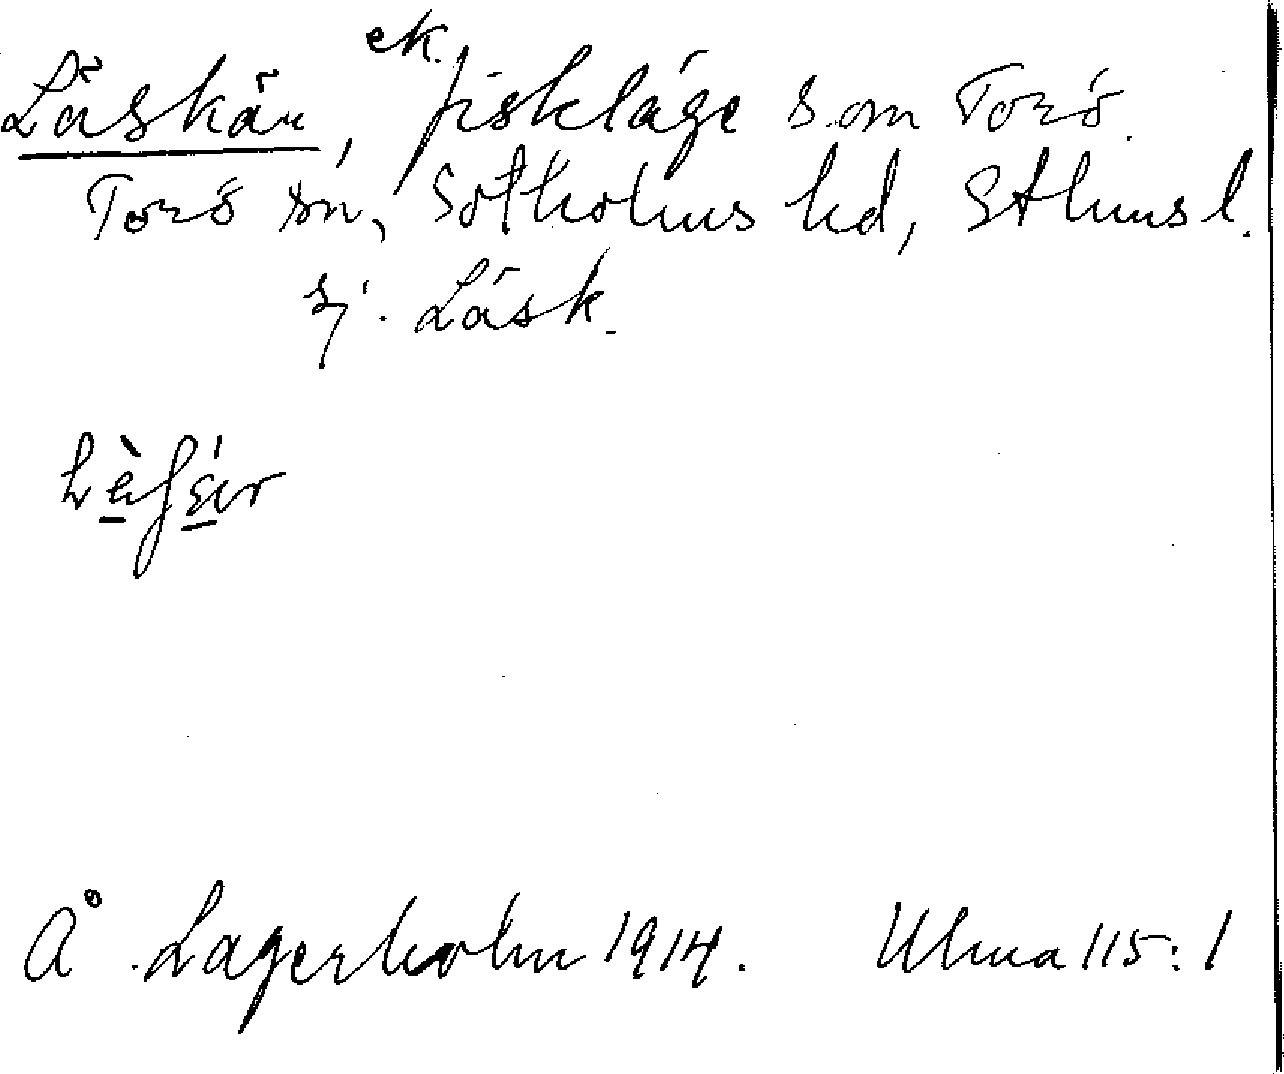 Låskär, ek. fiskläge s. om Torö.
Torö sn, Sotholms hd, Sthms l.
sj. Låsk.
Å. Lagerholm 1914. Ulma 115:1